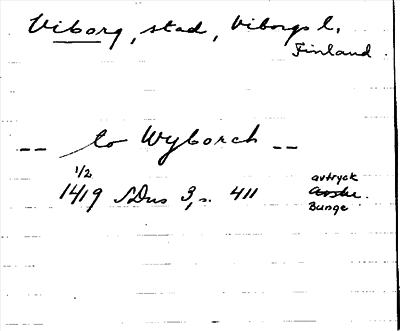 Viborg, stad, Viborgs l.
Finland.
-- to Wyborch --
1/2
1419 SDns 3, s. 411
avtryck
Avskr.
Bunge